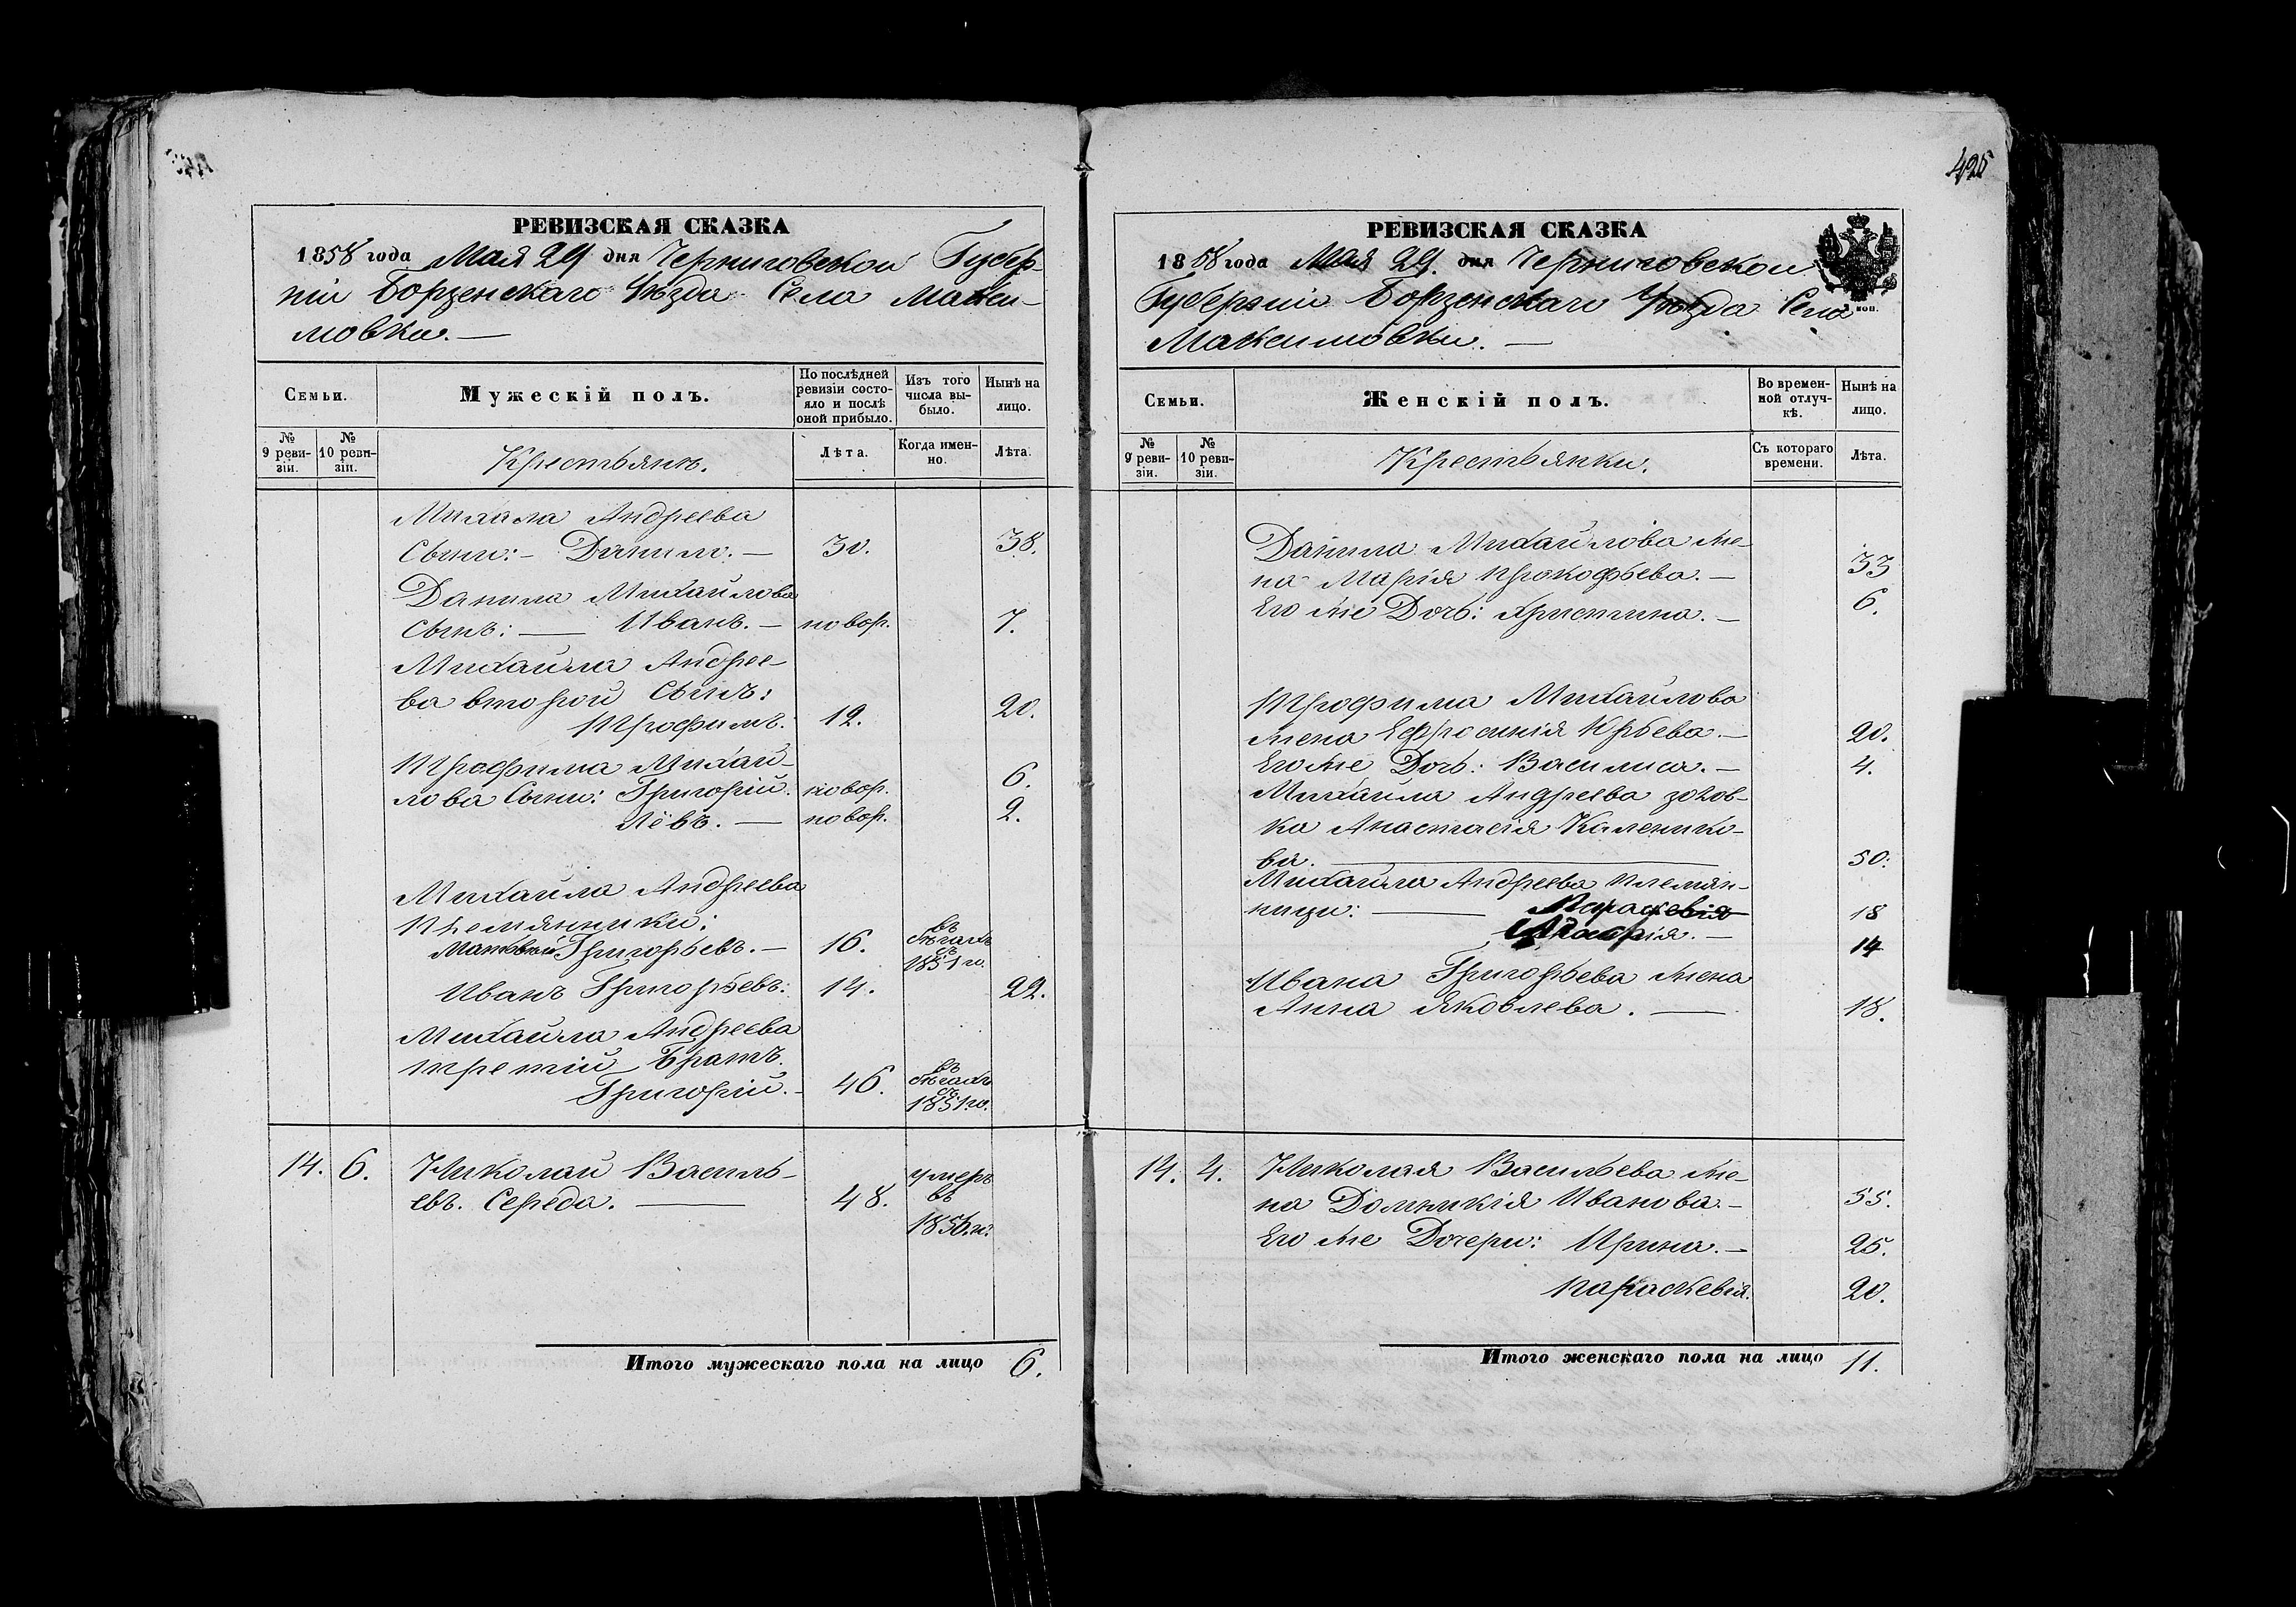 РЕВИЗСКАЯ СКАЗКА
1858 года Мая 29 дня Черниговской Губер-
ніи Борзенскаго Уѣзда Села Макси-
мовки. —
Семьи.
Мужескій полъ.
По послѣдней ревизіи состо-
яло и послѣ оной прибыло.
Изъ того числа вы-
было.
Нынѣ на лицо.
№ 9 реви-
зіи.
№ 10 реви-
зіи.
Крестьянъ.
Лѣта.
Когда имен-
но.
Лѣта.
Михайла Андреева
Сыны: - Данило. — 30. 38.
Данила Михайлова
Сынъ: — Иванъ. — новор. 7.
Михайла Андрее-
ва второй Сынъ:
Трофимъ. 12. 20.
Трофима Михай-
лова Сыны: Григорій. новор. 6.
Лёвъ. — новор. 2.
Михайла Андреева
Племянники:
Матвей Григорьевъ. — 16. въ бѣгахъ съ 1851 го.
Иванъ Григорьевъ: 14. 22.
Михайла Андреева
третій Братъ.
Григорій. - 46. въ бѣгахъ съ 1851 го.
14. 6. Николай Василь-
евъ. Середа. — 48. умеръ въ 1856. го.
Итого мужескаго пола на лицо 6.
425
РЕВИЗСКАЯ СКАЗКА
1858 года Мая 29. дня Черниговской
Губерніи Борзенскаго Уѣзда Села
коп.
Максимовки. —
Семьи.
Женскій полъ.
Во времен-
ной отлуч-
кѣ.
Нынѣ на лицо.
№ 9 реви-
зіи.
№ 10 реви-
зіи.
Крестьянки.
Съ котораго времени.
Лѣта.
Данила Михайлова же-
на Марія Прокофьева. — 33
Его же Дочь: Христина. — 6.
Трофима Михайлова
жена Ефросинія Юрьева. — 20.
Его же Дочь: Василиса. — 4.
Михайла Андреева золов-
ка Анастасія Каленико-
ва. — 50.
Михайла Андреева племян-
ницы: — Параскевія 18
14
Ивана Григорьева жена
Анна Яковлева. — 18.
14. 4. Николая Васильева же-
на Домникія Иванова. — 55.
Его же Дочери: Ирина. — 25.
Параскевія. 20.
Итого женскаго пола на лицо 11.